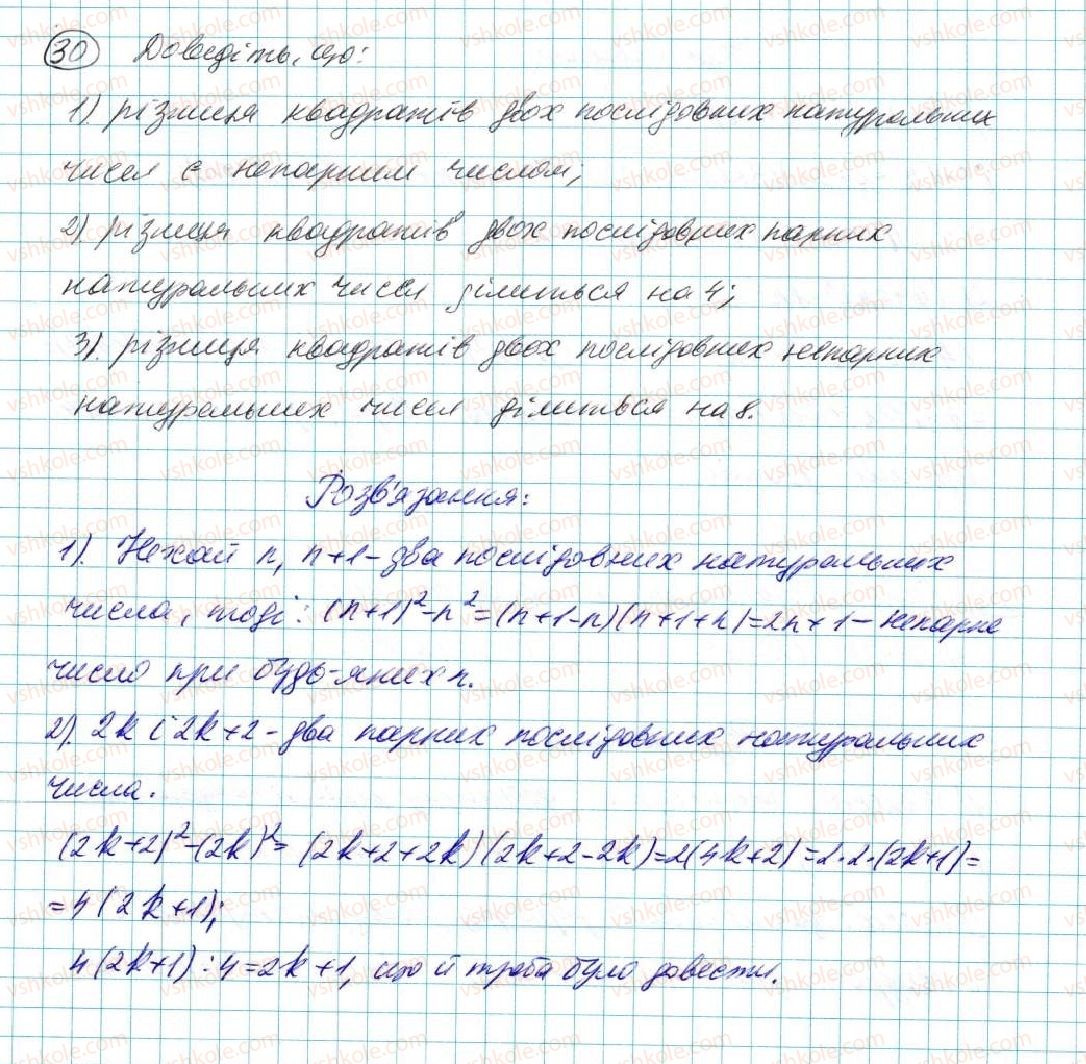 30 Доведіть, що:
1). різниця квадратів двох послідовних натуральних
чисел є непарним числом;
2). різниця квадратів двох послідовних парних
натуральних чисел ділиться на 4;
3). різниця квадратів двох послідовних непарних
натуральних чисел ділиться на 8.
Розв'язання:
1). Нехай n, n+1 - два послідовних натуральних
числа, тоді: (n+1)²-n²=(n+1-n)(n+1+n)=2n+1 - непарне
число при будь-яких n.
2). 2k і 2k+2 - два парних послідовних натуральних
числа.
(2k+2)²-(2k)²= (2k+2+2k)(2k+2-2k)=2(4k+2)=2·2·(2k+1)=
=4(2k+1);
4(2k+1):4=2k+1, що й треба було довести.